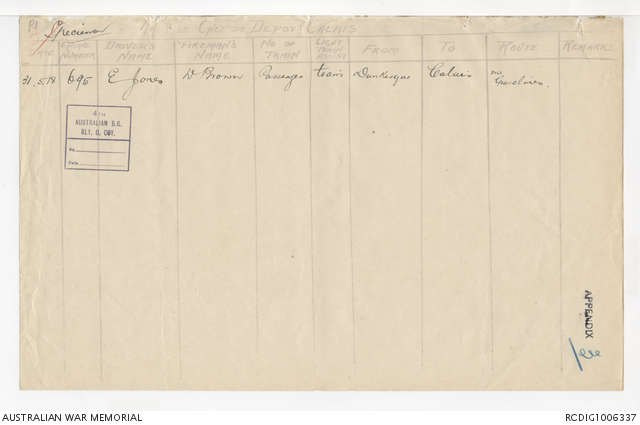 Specimen
DEPOT CALAIS
ENGINE NUMBER DRIVER'S NAME FIREMAN'S NAME NO OF TRAIN LIGHT TRAIN FROM TO ROUTE REMARKS
31.5.18 695 E Jones W Brown Passenger train Dunkerque Calais via Gravelines
4TH
AUSTRALIAN B.G.
RLY. O. COY.
No.
Date
APPENDIX
AUSTRALIAN WAR MEMORIAL
RCDIG1006337